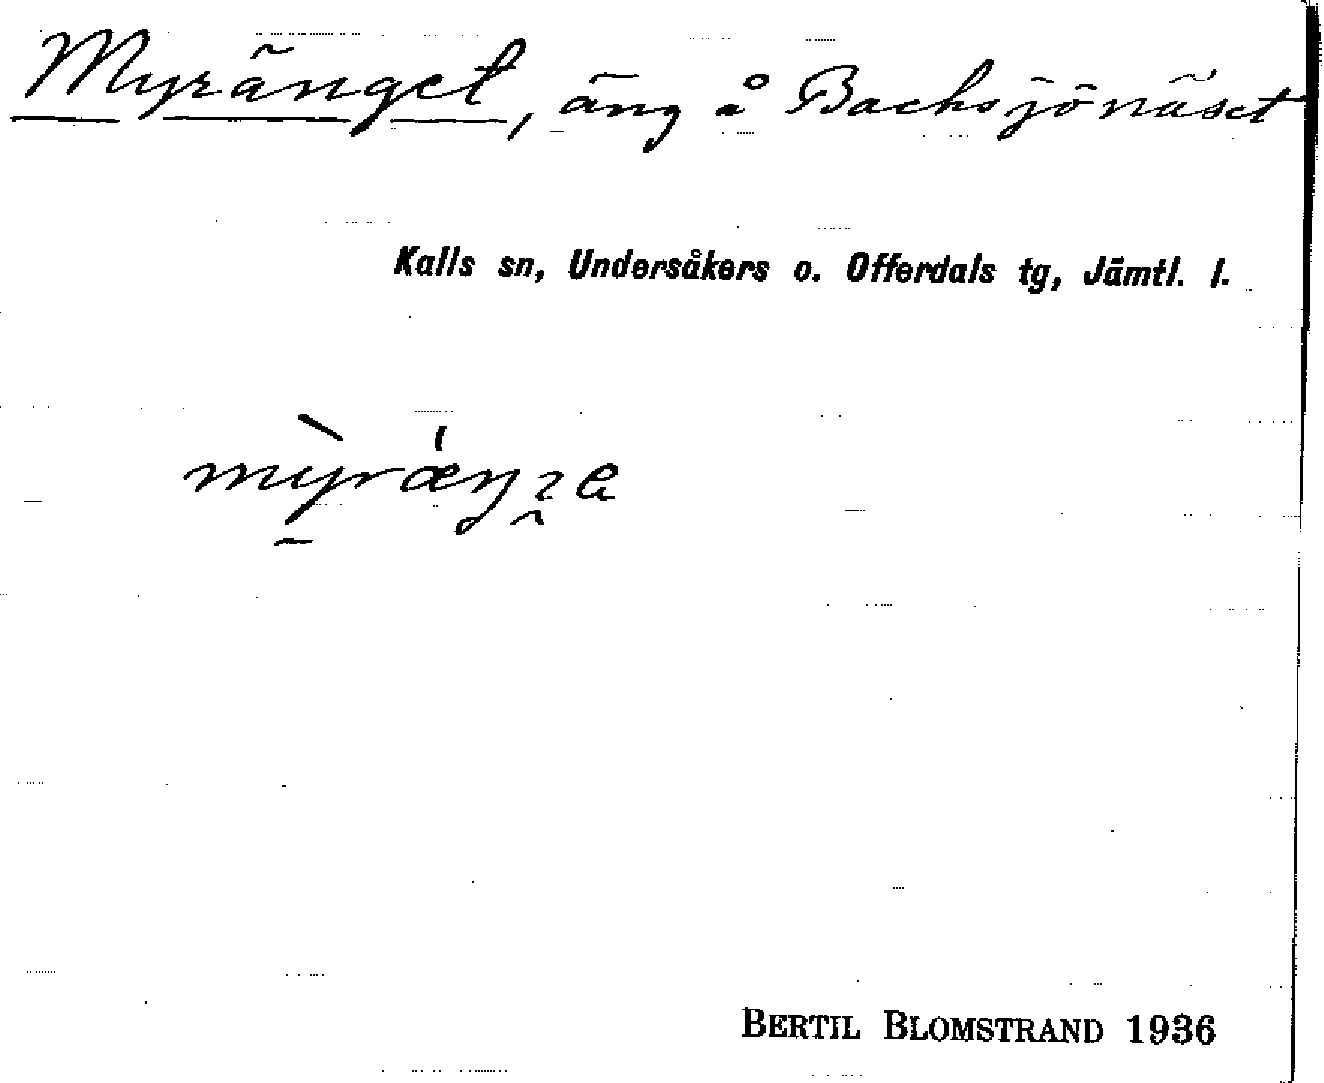 Myränget, äng å Backsjönäset
Kalls sn, Undersåkers o. Offerdals tg, Jämtl. l.
BERTIL BLOMSTRAND 1936